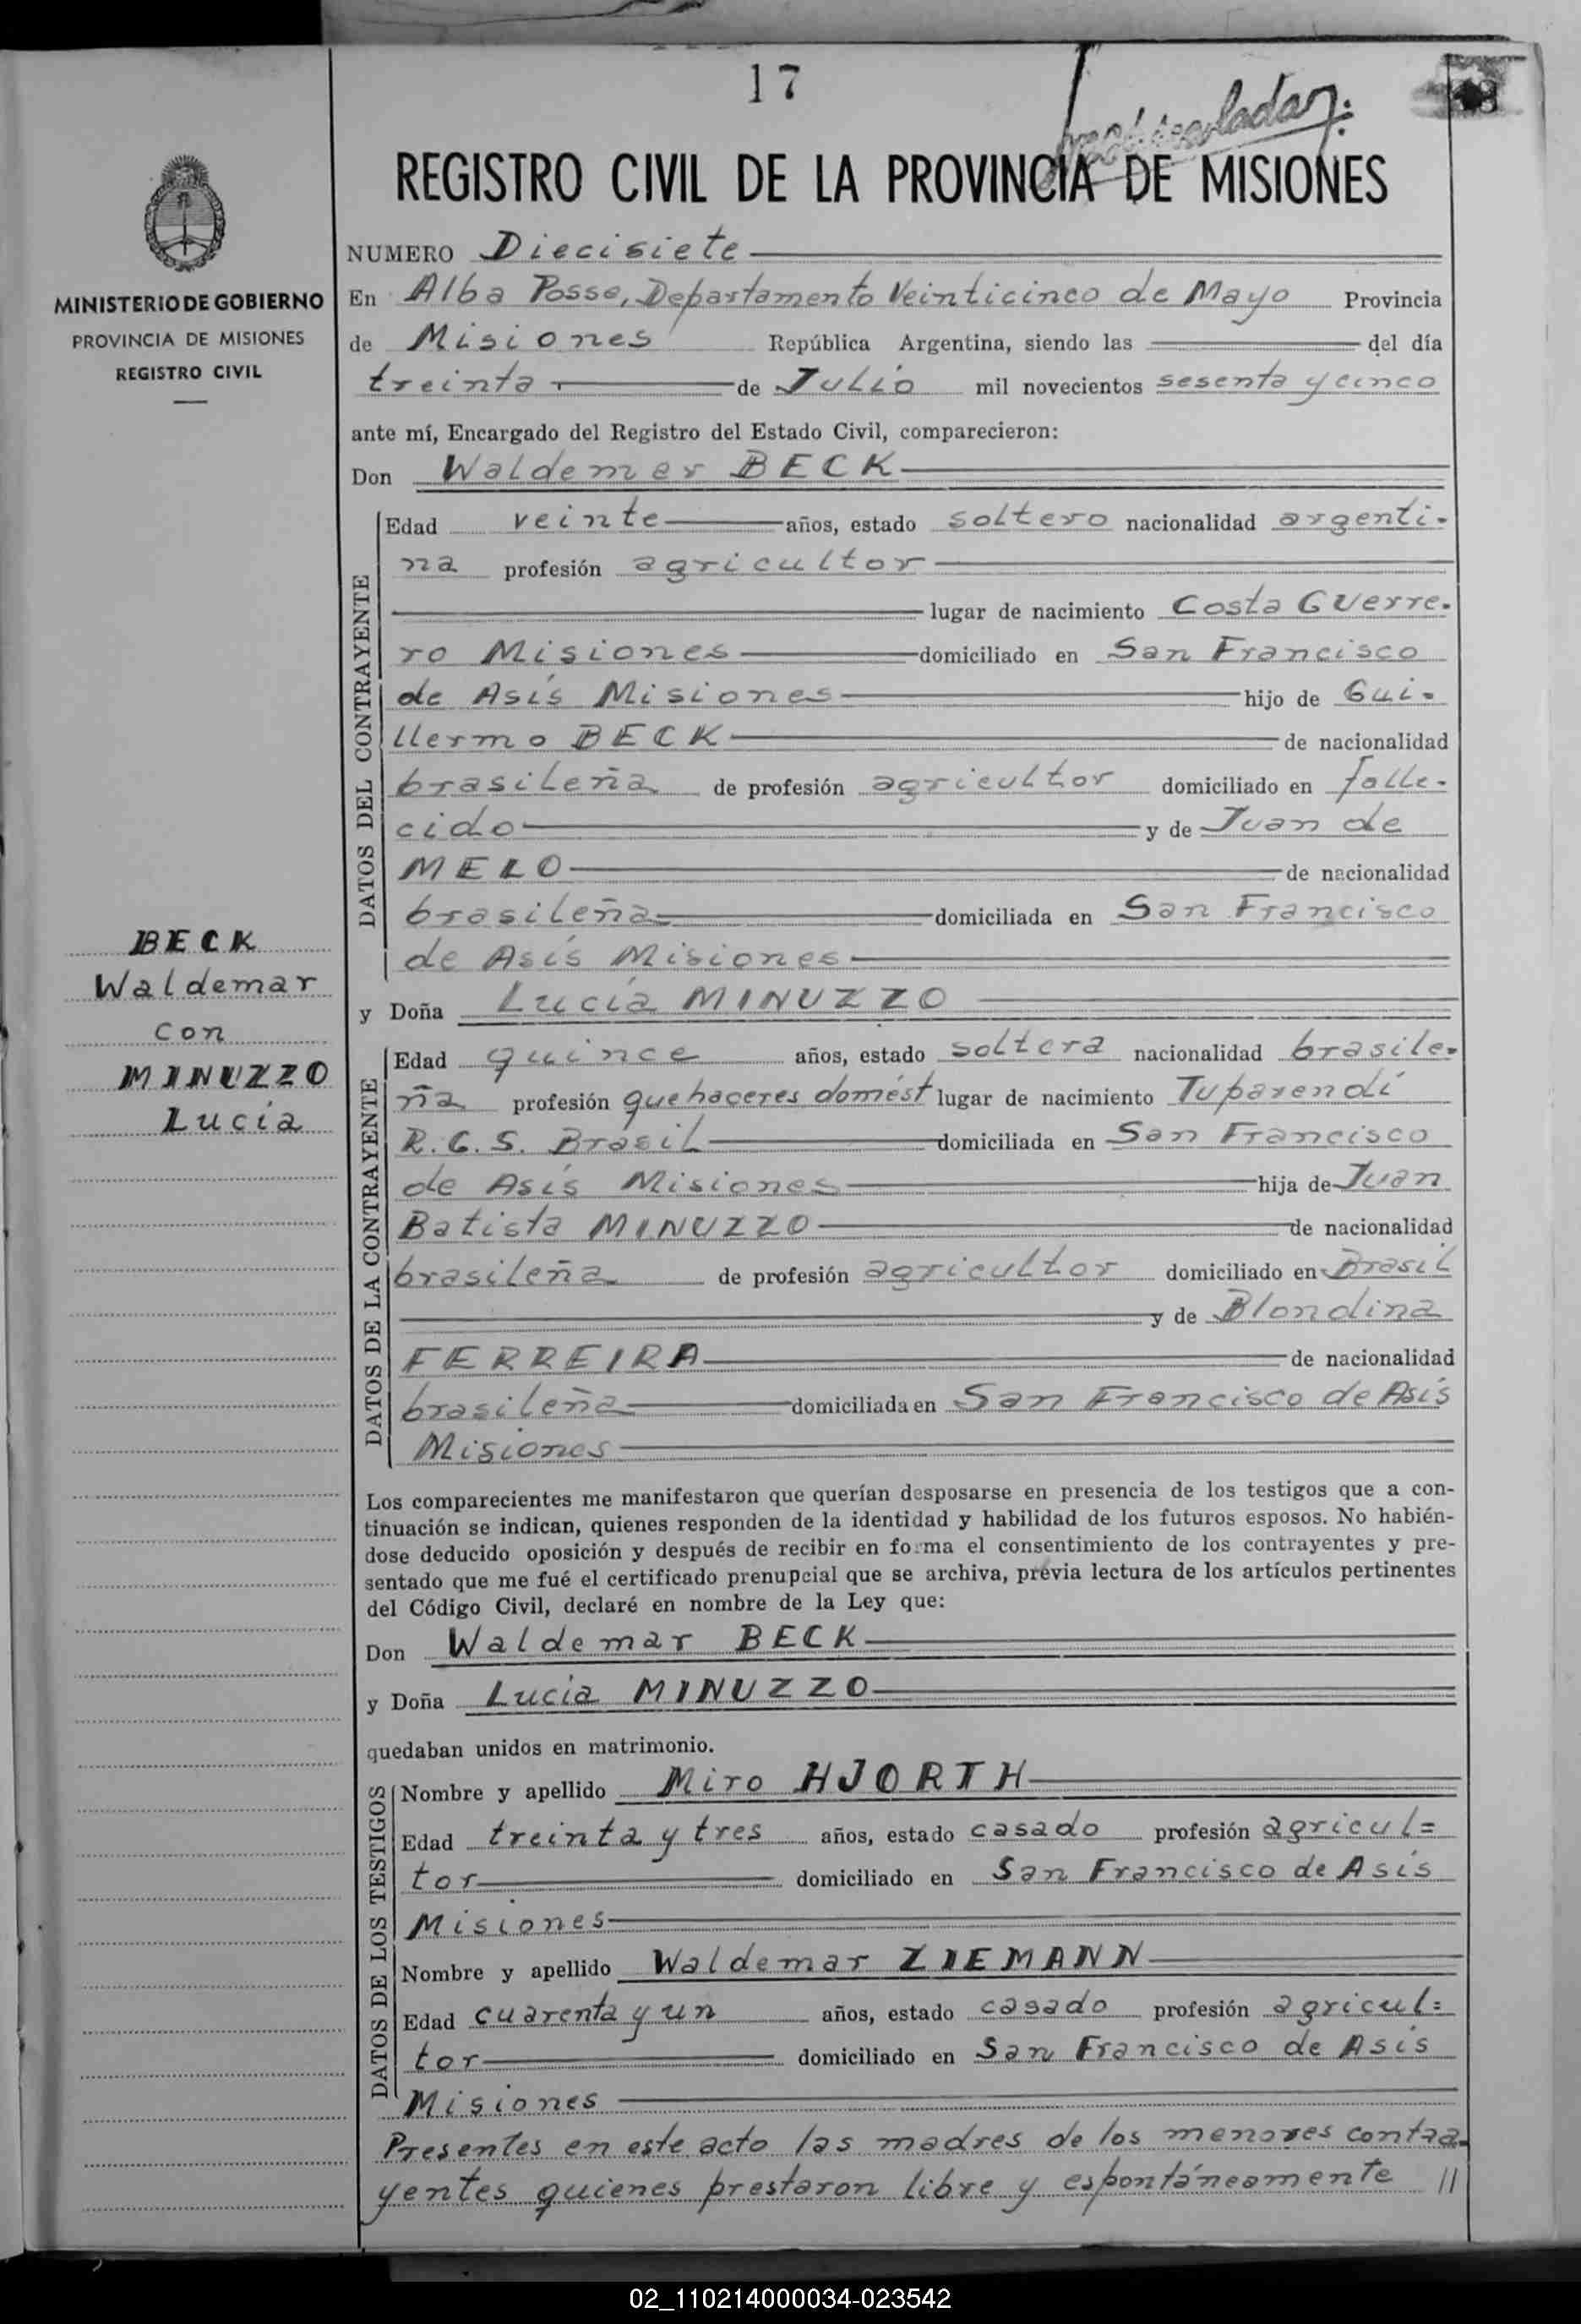 17
REGISTRO CIVIL DE LA PROVINCIA DE MISIONES
MINISTERIO DE GOBIERNO
PROVINCIA DE MISIONES
REGISTRO CIVIL
BECK
Waldemar
con
MINUZZO
Lucía
NUMERO Diecisiete
En Alba Posse, Departamento Veinticinco de Mayo Provincia
de Misiones República Argentina, siendo las del día
treinta de Julio mil novecientos sesenta y cinco
ante mí, Encargado del Registro del Estado Civil, comparecieron:
Don Waldemar BECK
DATOS DEL CONTRAYENTE
Edad veinte años, estado soltero nacionalidad argenti-
na profesión agricultor
lugar de nacimiento Costa Guerre-
ro Misiones domiciliado en San Francisco
de Asís Misiones hijo de Gui-
llermo BECK de nacionalidad
brasileña de profesión agricultor domiciliado en falle-
cido y de Juan de
MELO de nacionalidad
brasileña domiciliada en San Francisco
de Asís Misiones
y Doña Lucía MINUZZO
DATOS DE LA CONTRAYENTE
Edad quince años, estado soltera nacionalidad brasile-
ña profesión quehaceres domést lugar de nacimiento Tuparendí
R.G.S. Brasil domiciliada en San Francisco
de Asís Misiones hija de Juan
Batista MINUZZO de nacionalidad
brasileña de profesión agricultor domiciliado en Brasil
y de Blondina
FERREIRA de nacionalidad
brasileña domiciliada en San Francisco de Asís
Misiones
Los comparecientes me manifestaron que querían desposarse en presencia de los testigos que a con-
tinuación se indican, quienes responden de la identidad y habilidad de los futuros esposos. No habién-
dose deducido oposición y después de recibir en forma el consentimiento de los contrayentes y pre-
sentado que me fué el certificado prenupcial que se archiva, prévia lectura de los artículos pertinentes
del Código Civil, declaré en nombre de la Ley que:
Don Waldemar BECK
y Doña Lucia MINUZZO
quedaban unidos en matrimonio.
DATOS DE LOS TESTIGOS
Nombre y apellido Miro HJORTH
Edad treinta y tres años, estado casado profesión agricul=
tor domiciliado en San Francisco de Asís
Misiones
Nombre y apellido Waldemar ZIEMANN
Edad cuarenta y un años, estado casado profesión agricul=
tor domiciliado en San Francisco de Asís
Misiones
Presentes en este acto las madres de los menores contra-
yentes quienes prestaron libre y espontáneamente //
02_110214000034-023542